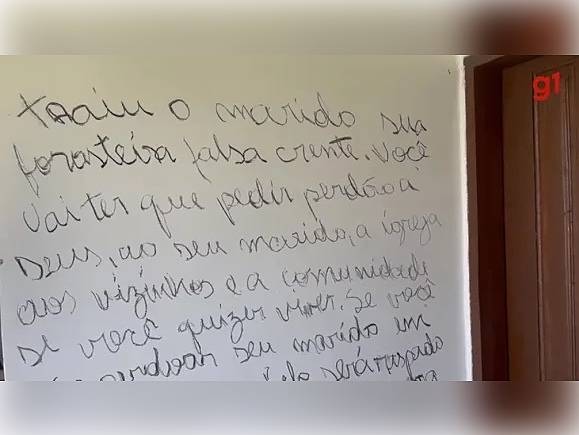 g1
traiu o marido sua
forasteira falsa crente. Você
Vai ter que pedir perdão a
Deus, ao seu marido, a igreja
aos vizinhos e a comunidade
se você quizer viver. Se você
perdoar seu marido em
será raspado